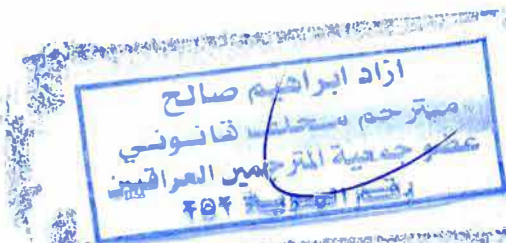 ازاد ابراهيم صالح
مترجم محلف قانوني
عضو جمعية المترجمين العراقيين
رقم الهوية ٤٥٤